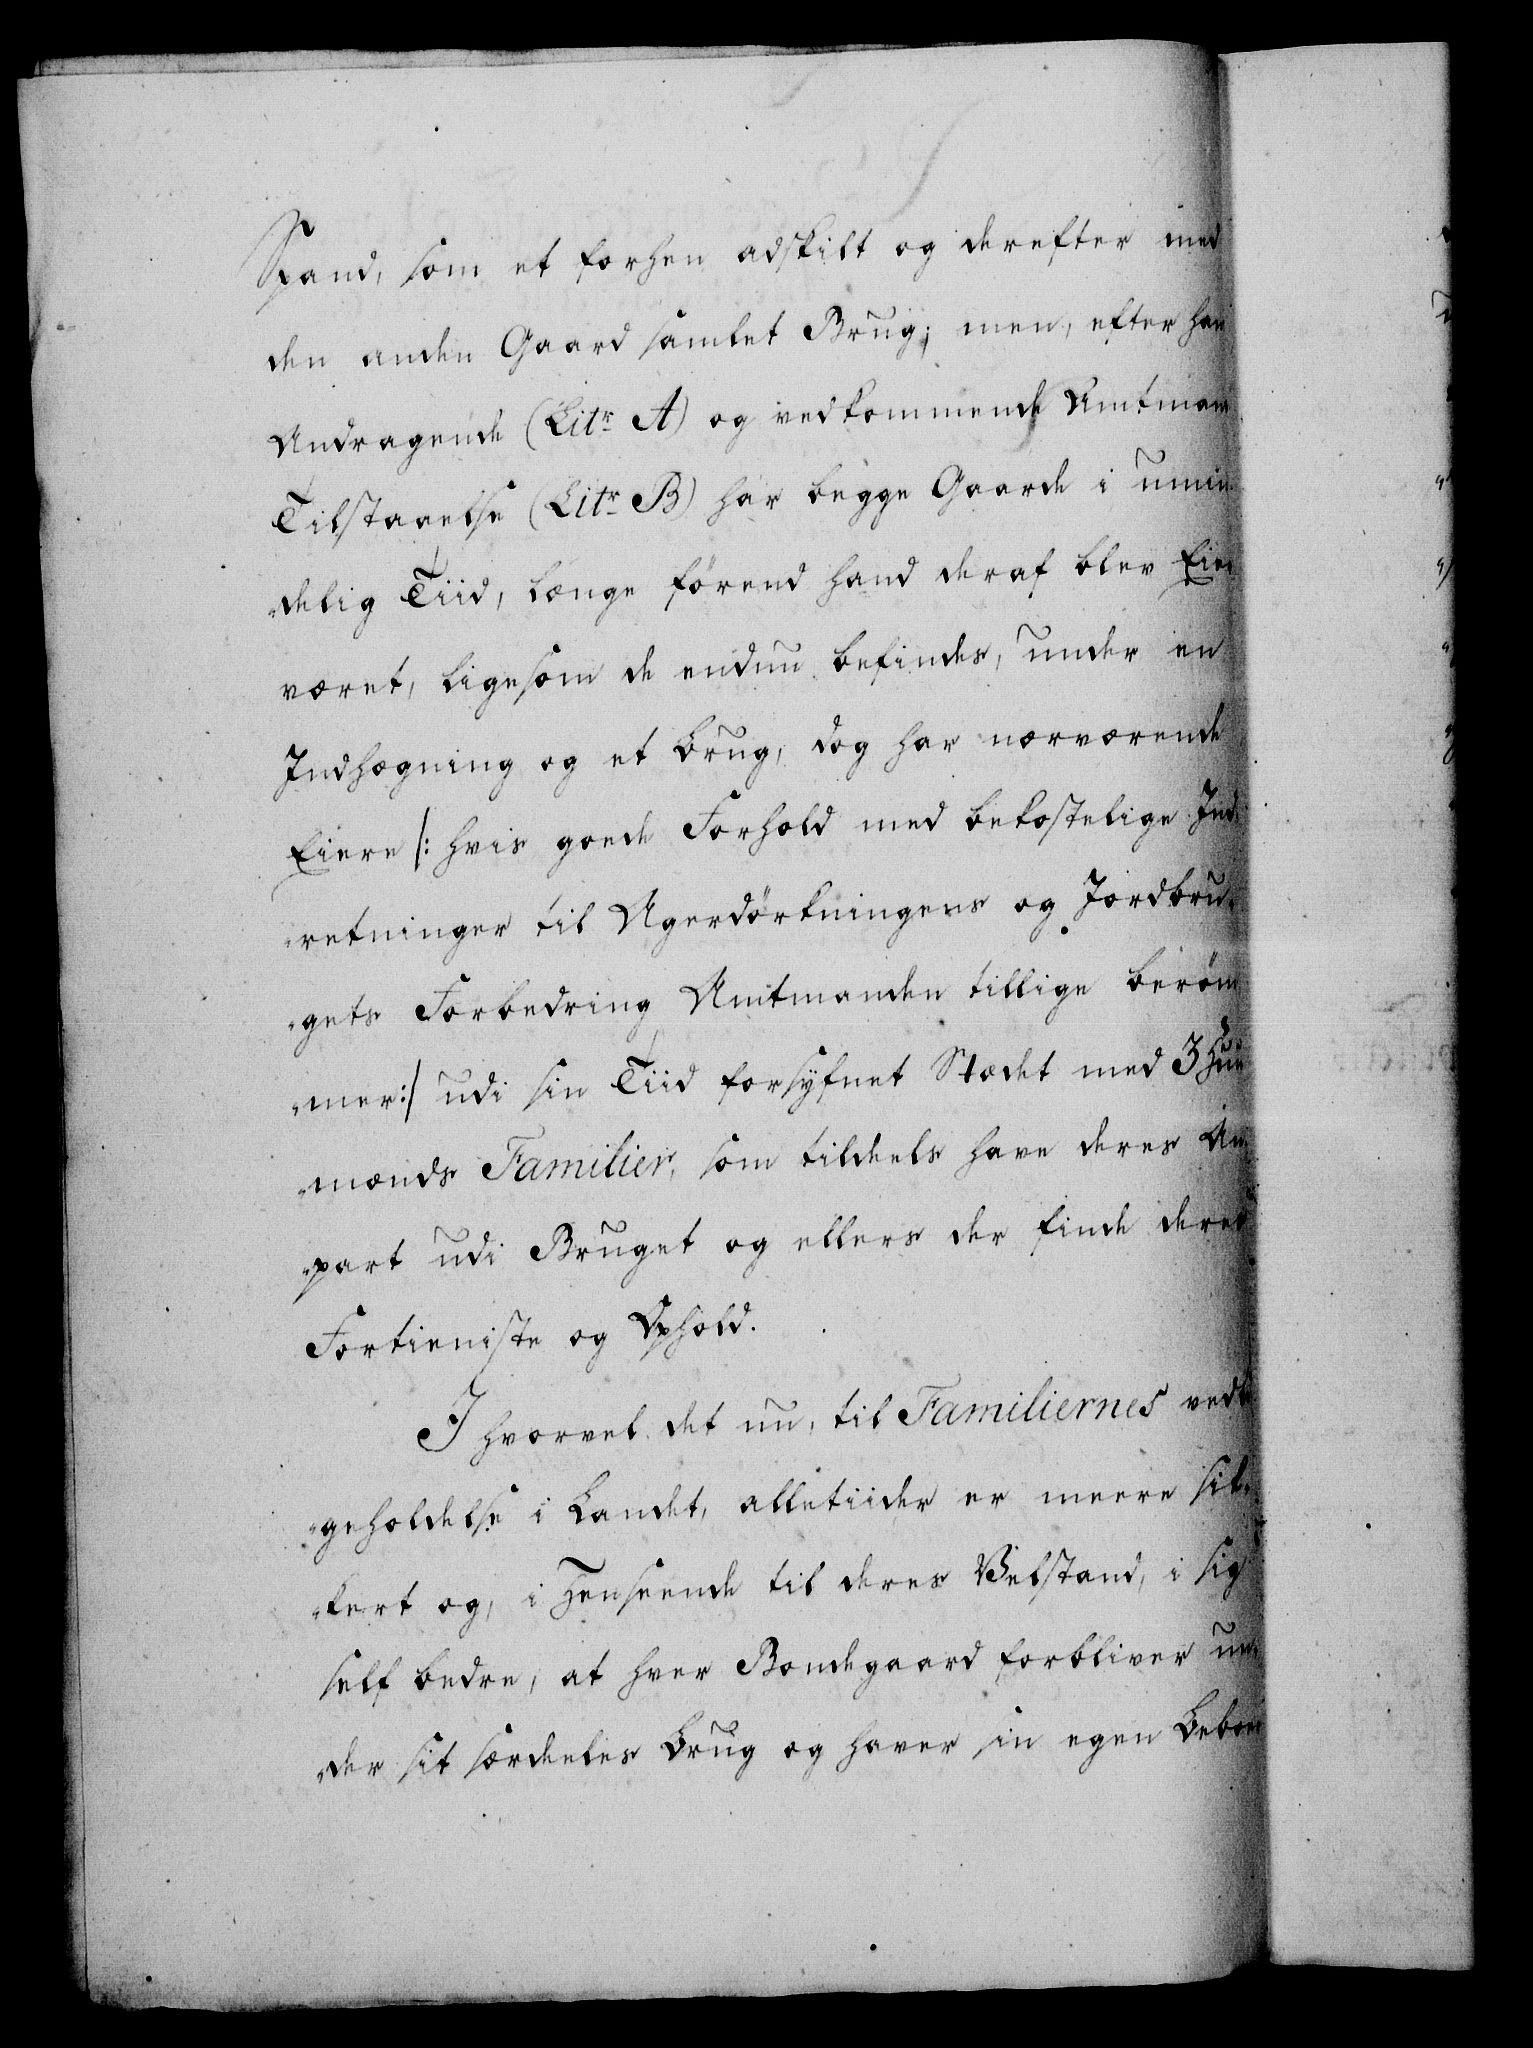 Spand, som et forhen adskilt og derefter med
den anden Gaard samlet Brug; men, efter han
Andragende (Litr A) og vedkommende Amtmand
Tilstaaelse (Litr B) har begge Gaarde i umin-
„delig Tiid, længe førend hand deraf blev Eier
været, ligesom de endnu befindes, under en
Indhægning og et Brug, dog har nærværende
Eiere /: hvis goede Forhold med bekostelige Ind-
„retninger til Agerdörkningens og Jordbru-
„gets Forbedring Amtmanden tillige beröm-
„mer:/ udi sin Tiid forsyfnet Stædet med 3 Huus-
„mænds Familier, som tildeels have deres An-
„part udi Bruget og ellers der finde deres
Fortieniste og Ophold.
I hvorvel det nu, til Familiernes vedli-
„geholdelse i Landet, alletiider er meere sik-
„kert og, i Henseende til deres Velstand, i sig
self bedre, at hver Bondegaard forbliver un-
„der sit særdeeles Brug og haver sin egen Beboer